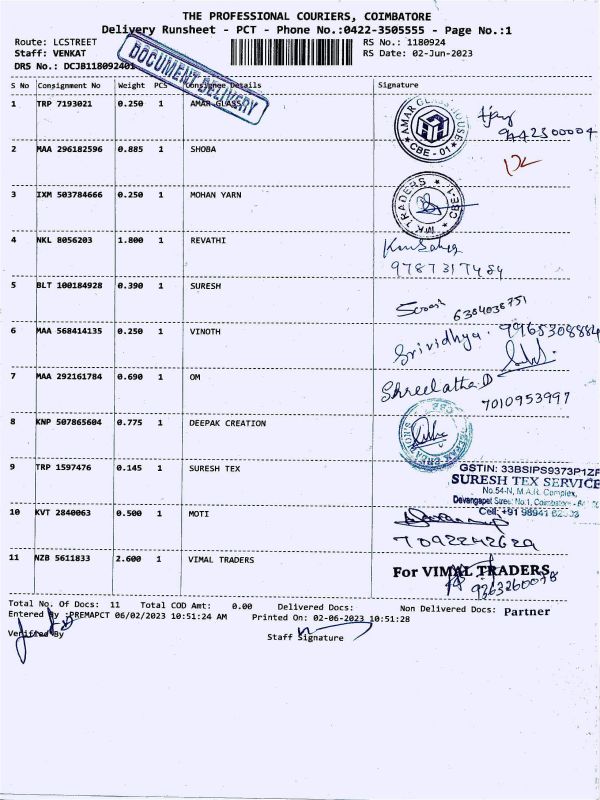 THE PROFESSIONAL COURIERS, COIMBATORE
Delivery Runsheet - PCT - Phone No.:0422-3505555 - Page No.:1
Route: LCSTREET RS No.: 1180924
Staff: VENKAT RS Date: 02-Jun-2023
DRS No.: DCJB118092401
DOCUMENT DELIVERY
S No Consignment No Weight PCS Consignee Details Signature
1 TRP 7193021 0.250 1 AMAR GLASS
AMAR GLASS HOUSE
CBE - 01
9442300004
2 MAA 296182596 0.885 1 SHOBA
3 IXM 503784666 0.250 1 MOHAN YARN
M.K TRADERS CBE-1
4 NKL 8056203 1.800 1 REVATHI
9787317484
5 BLT 100184928 0.390 1 SURESH
6384038751
6 MAA 568414135 0.250 1 VINOTH
Srividhya. 9965308884
7 MAA 292161784 0.690 1 OM
Shreelatha D
7010953997
8 KNP 507865604 0.775 1 DEEPAK CREATION
9 TRP 1597476 0.145 1 SURESH TEX
GSTIN: 33BSIPS9373P1ZF
SURESH TEX SERVICE
No.54-N, M.A.R. Complex,
Devangapet Street No.1, Coimbatore -
Cell: +91 98941
10 KVT 2840063 0.500 1 MOTI
7092242629
11 NZB 5611833 2.600 1 VIMAL TRADERS
For VIMAL TRADERS,
9363260078
Partner
Total No. Of Docs: 11 Total COD Amt: 0.00 Delivered Docs: Non Delivered Docs:
Entered By :PREMAPCT 06/02/2023 10:51:24 AM Printed On: 02-06-2023 10:51:28
Verified By Staff Signature